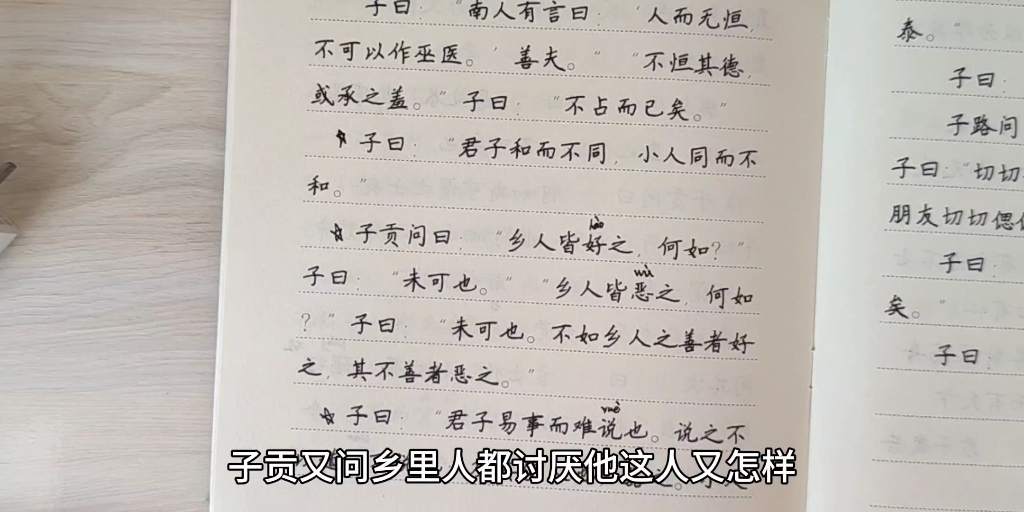 子曰："南人有言曰：'人而无恒，
不可以作巫医。'善夫。""不恒其德，
或承之羞。"子曰："不占而已矣。"
☆子曰："君子和而不同，小人同而不
和。"
hào
☆子贡问曰："乡人皆好之，何如？"
wù
子曰："未可也。""乡人皆恶之，何如
？"子曰："未可也。不如乡人之善者好
之，其不善者恶之。"
yuè
☆子曰："君子易事而难说也。说之不
子贡又问乡里人都讨厌他这人又怎样
泰。"
子曰：
子路问
子曰："切切
朋友切切偲
子曰：
矣。"
子曰